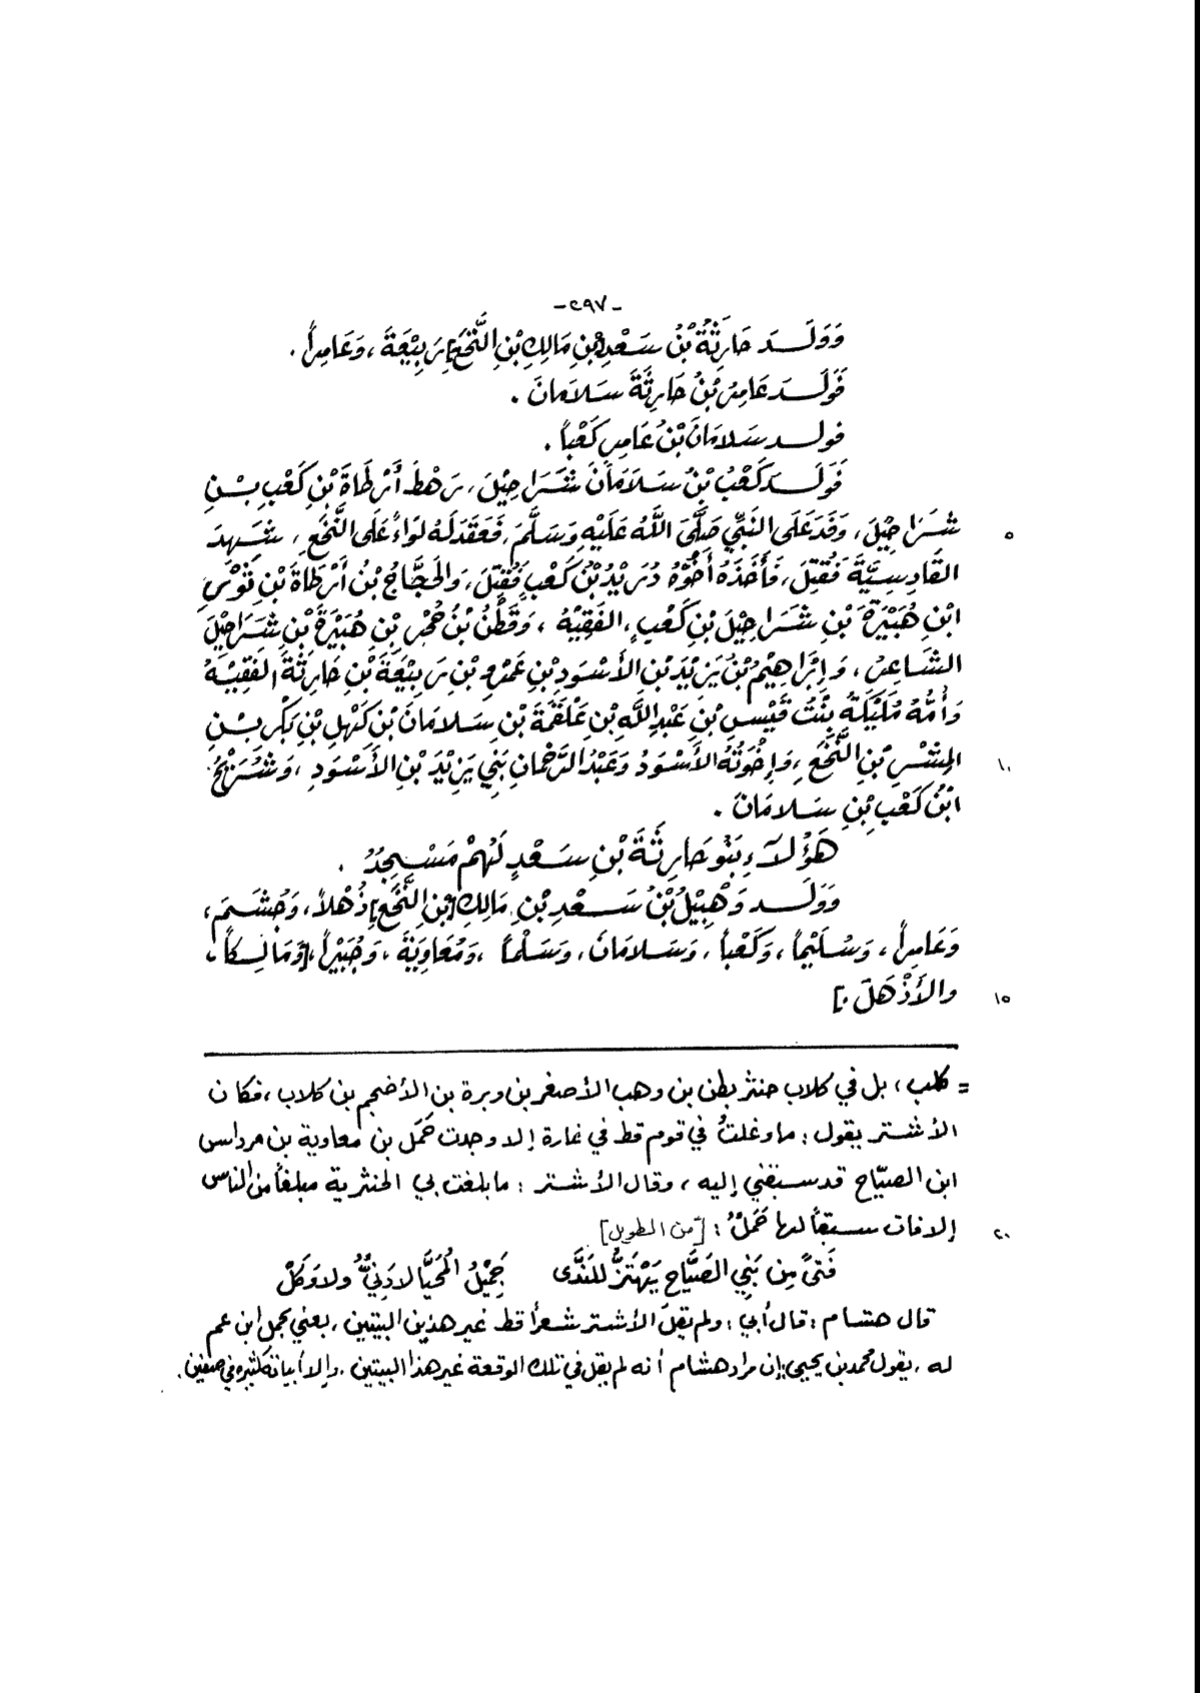 -٢٩٧-
وَوَلَـــدَ حَارِثَةُ بْنُ سَعْدِ [بْنِ مَالِكِ بْنِ النَّخَعِ] رَبِيْعَةَ ، وَعَامِراً .
فَوَلَـــدَ عَامِرُ بْنُ حَارِثَةَ سَلَامَانَ .
فولـــد سَلَامَانُ بْنُ عَامِرٍ كَعْباً .
فَوَلَـــدَ كَعْبُ بْنُ سَلَامَانَ شَرَاحِيْلَ ، رَهْطَ أَرْطَاةَ بْنِ كَعْبِ بْـــنِ
شَرَاحِيْلَ ، وَفَدَ عَلَى النَّبِيِّ صَلَّى اللَّهُ عَلَيْهِ وَسَلَّمَ ، فَعَقَدَ لَهُ لِوَاءً عَلَى النَّخَعِ ، شَهِدَ ٥
القَادِسِيَّةَ فَقُتِلَ ، فَأَخَذَهُ أَخُوْهُ دُرَيْدُ بْنُ كَعْبٍ فَقُتِلَ ، وَالحَجَّاجُ بْنُ أَرْطَاةَ بْنِ ثَوْرِ
ابْنِ هُبَيْرَةَ بْنِ شَرَاحِيْلَ بْنِ كَعْبٍ ، الفَقِيْهُ ، وَقَطَنُ بْنُ حُجْرِ بْنِ هُبَيْرَةَ بْنِ شَرَاحِيْلَ
الشَّاعِرُ ، وَإِبْرَاهِيْمُ بْنُ يَزِيْدَ بْنِ الأَسْوَدِ بْنِ عَمْرِو بْنِ رَبِيْعَةَ بْنِ حَارِثَةَ الفَقِيْـــهُ
وَأُمُّهُ مُلَيْكَةُ بِنْتُ قَيْسِ بْنِ عَبْدِ اللَّهِ بْنِ عَلْقَمَةَ بْنِ سَلَامَانَ بْنِ كَهْلِ بْنِ بَكْرِ بْـــنِ
المِنْشَرِ بْنِ النَّخَعِ ، وَإِخْوَتُهُ الأَسْوَدُ وَعَبْدُ الرَّحْمَانِ بَنِي يَزِيْدَ بْنِ الأَسْوَدِ ، وَشُرَيْحُ ١٠
ابْنُ كَعْبِ بْنِ سَلَامَانَ .
هَؤُلَاءِ بَنُو حَارِثَةَ بْنِ سَعْدٍ لَهُمْ مَسْجِدٌ .
وَوَلَـــدَ وَهْبِيْلُ بْنُ سَعْدِ بْنِ مَالِكِ [بْنِ النَّخَعِ] ذُهْلاً ، وَجُشَمَ ،
وَعَامِراً ، وَسُلَيْماً ، وَكَعْباً ، وَسَلَامَانَ ، وَسَلْماً ، وَمُعَاوِيَةَ ، وَجُبَيْراً ، [وَمَالِكاً ،
وَالأَذْهَلَ .] ١٥
= كلب ، بل في كلاب حنثر بطن بن وهب الأصغر بن وبرة بن الأضجم بن كلاب ، فكان
الأشتر يقول : ما وغلتُ في قوم قط في غارة إلا وجدت حَمَل بن معاوية بن مرداس
ابن الصيّاح قد سبقني إليه ، وقال الأشتر : ما بلغت بي الحنثرية مبلغاً من الناس
إلا فات سبقاً لها حَمَلٌ : [من الطويل] ٢٠
فَتىً مِن بَنِي الصَيَّاحِ يَهْتَزُّ للنَدَى جَمِيْلُ الُمحَيَّا لا دَنِيٌّ ولا وَكَلْ
قال هشام : قال أبي : ولم يقل الأشتر شعراً قط غير هذين البيتين ، يعني بحمل ابن عم
له . يقول محمد بن يحيى : إن مراد هشام أنه لم يقل في تلك الوقعة غير هذا البيتين . وإلا أبياته كثيرة في صفين .